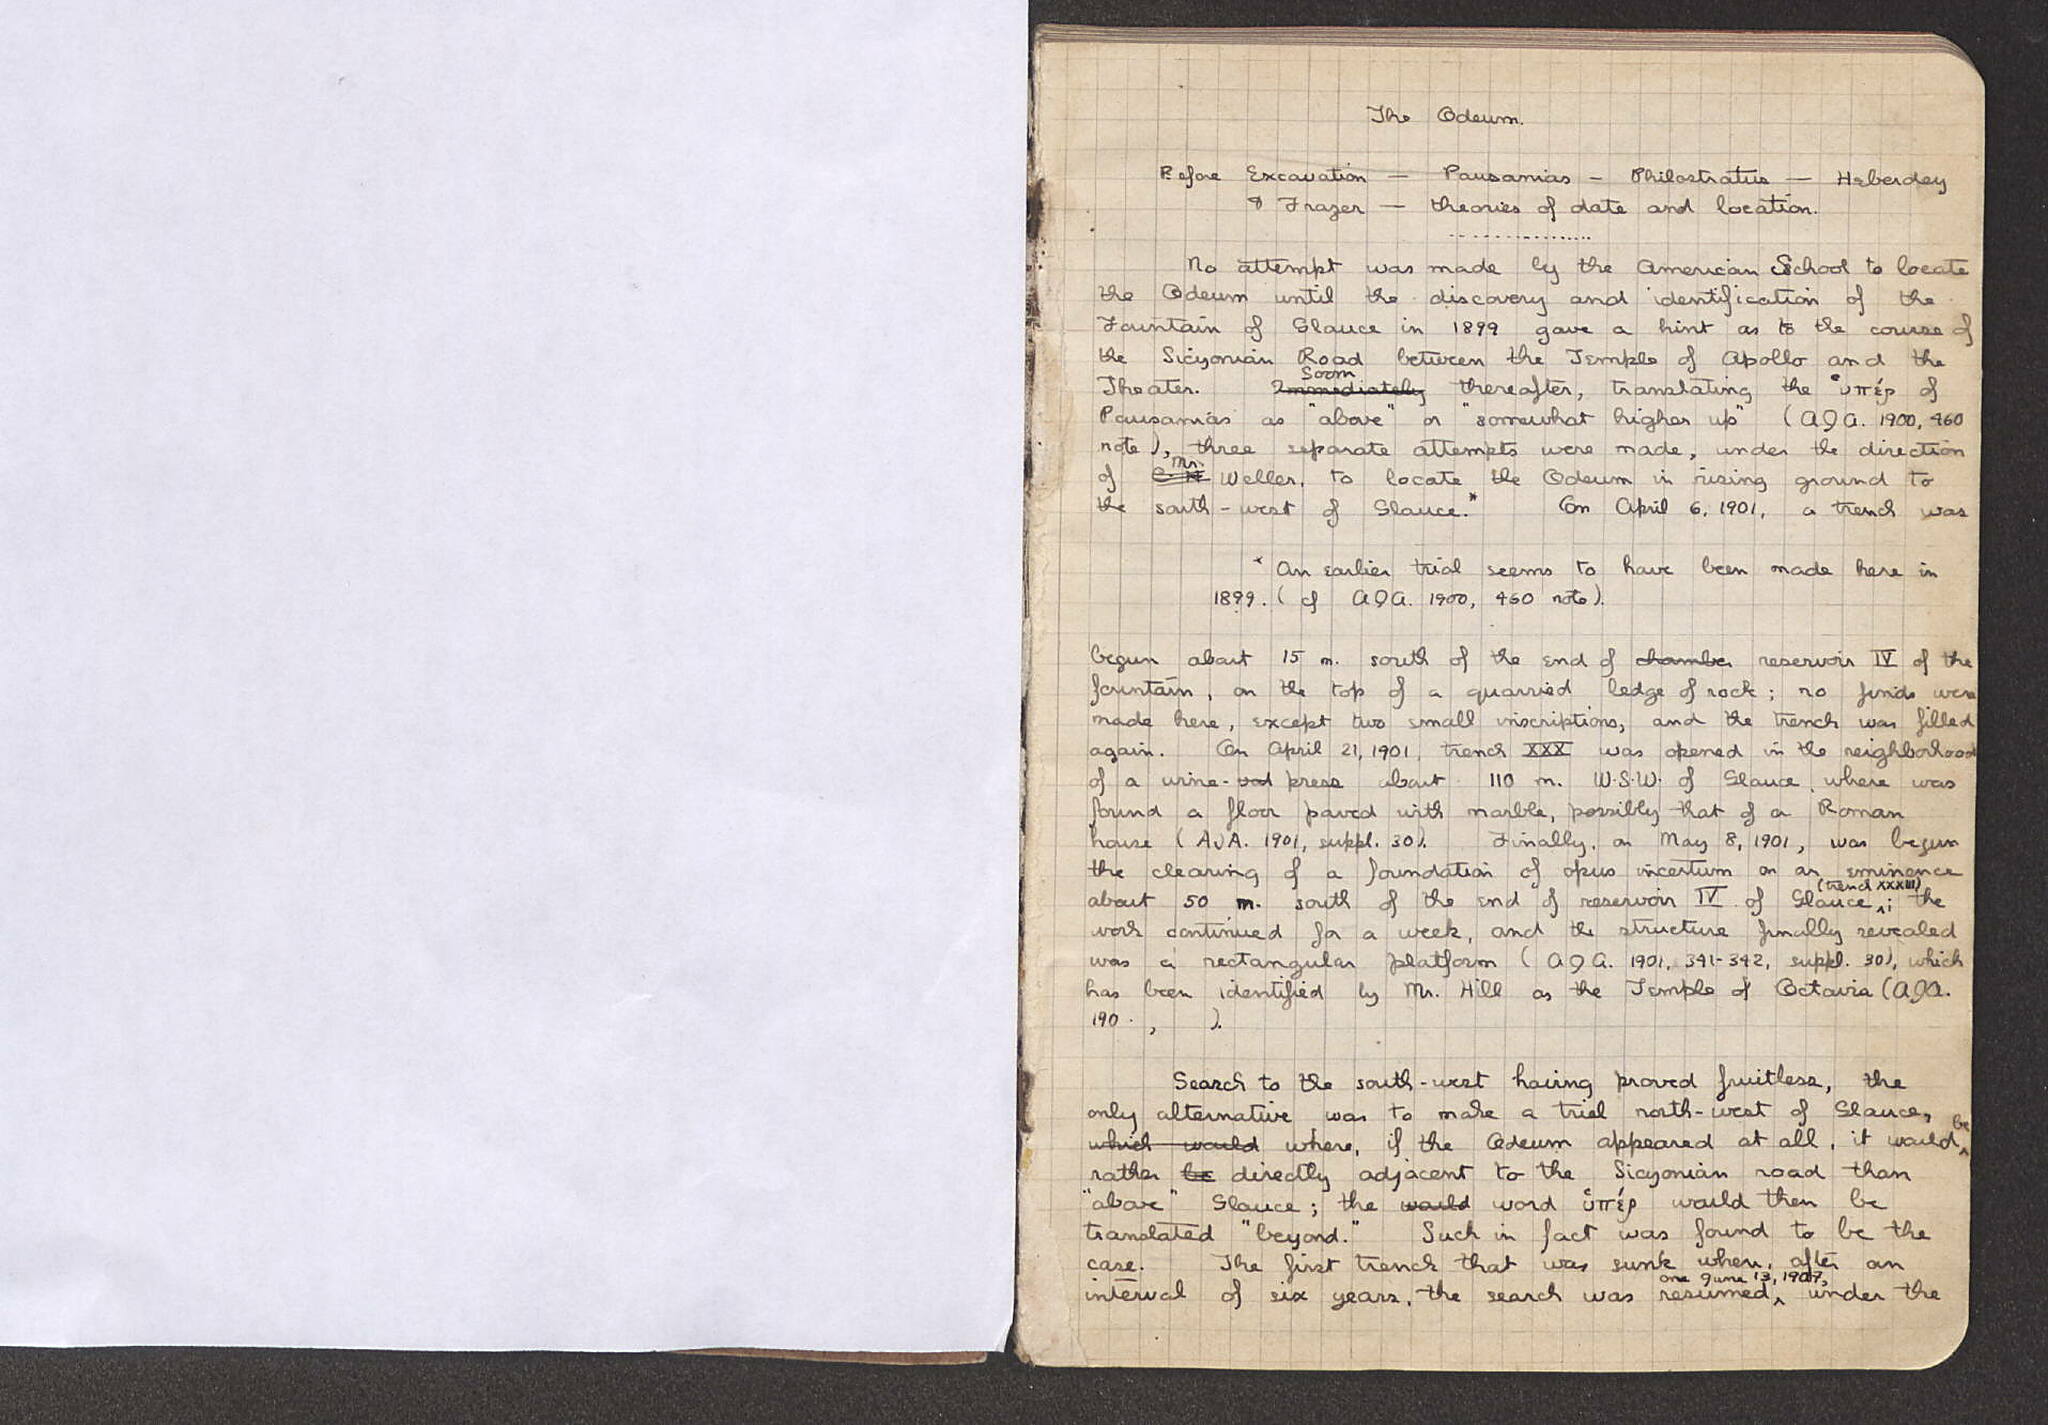 The Odeum.
Before Excavation — Pausanias — Philostratus — Heberdey
& Frazer — theories of date and location.
No attempt was made by the American School to locate
the Odeum until the discovery and identification of the
Fountain of Glauce in 1899 gave a hint as to the course of
the Sicyonian Road between the Temple of Apollo and the
Soon
Theater. Immediately thereafter, translating the ὑπέρ of
Pausanias as "above" or "somewhat higher up" (AJA. 1900, 460
note), three separate attempts were made, under the direction
Mr.
of Weller, to locate the Odeum in rising ground to
the south-west of Glauce.* On April 6, 1901, a trench was
* An earlier trial seems to have been made here in
1899. (cf AJA. 1900, 460 note).
begun about 15 m. south of the end of chamber reservoir IV of the
fountain, on the top of a quarried ledge of rock; no finds were
made here, except two small inscriptions, and the trench was filled
again. On April 21, 1901, trench XXX was opened in the neighborhood
of a wine-vat press about 110 m. W.S.W. of Glauce, where was
found a floor paved with marble, possibly that of a Roman
house (AJA. 1901, suppl. 30). Finally, on May 8, 1901, was begun
the clearing of a foundation of opus incertum on an eminence
(trench XXXIII)
about 50 m. south of the end of reservoir IV of Glauce ^; the
work continued for a week, and the structure finally revealed
was a rectangular platform (AJA. 1901, 341-342, suppl. 30), which
has been identified by Mr. Hill as the Temple of Octavia (AJA.
190 . , ).
Search to the south-west having proved fruitless, the
only alternative was to make a trial north-west of Glauce,
be
which would where, if the Odeum appeared at all, it would ^
rather be directly adjacent to the Sicyonian road than
"above" Glauce; the would word ὑπέρ would then be
translated "beyond." Such in fact was found to be the
case. The first trench that was sunk when, after an
one June 13, 1907,
interval of six years, the search was resumed ^ under the